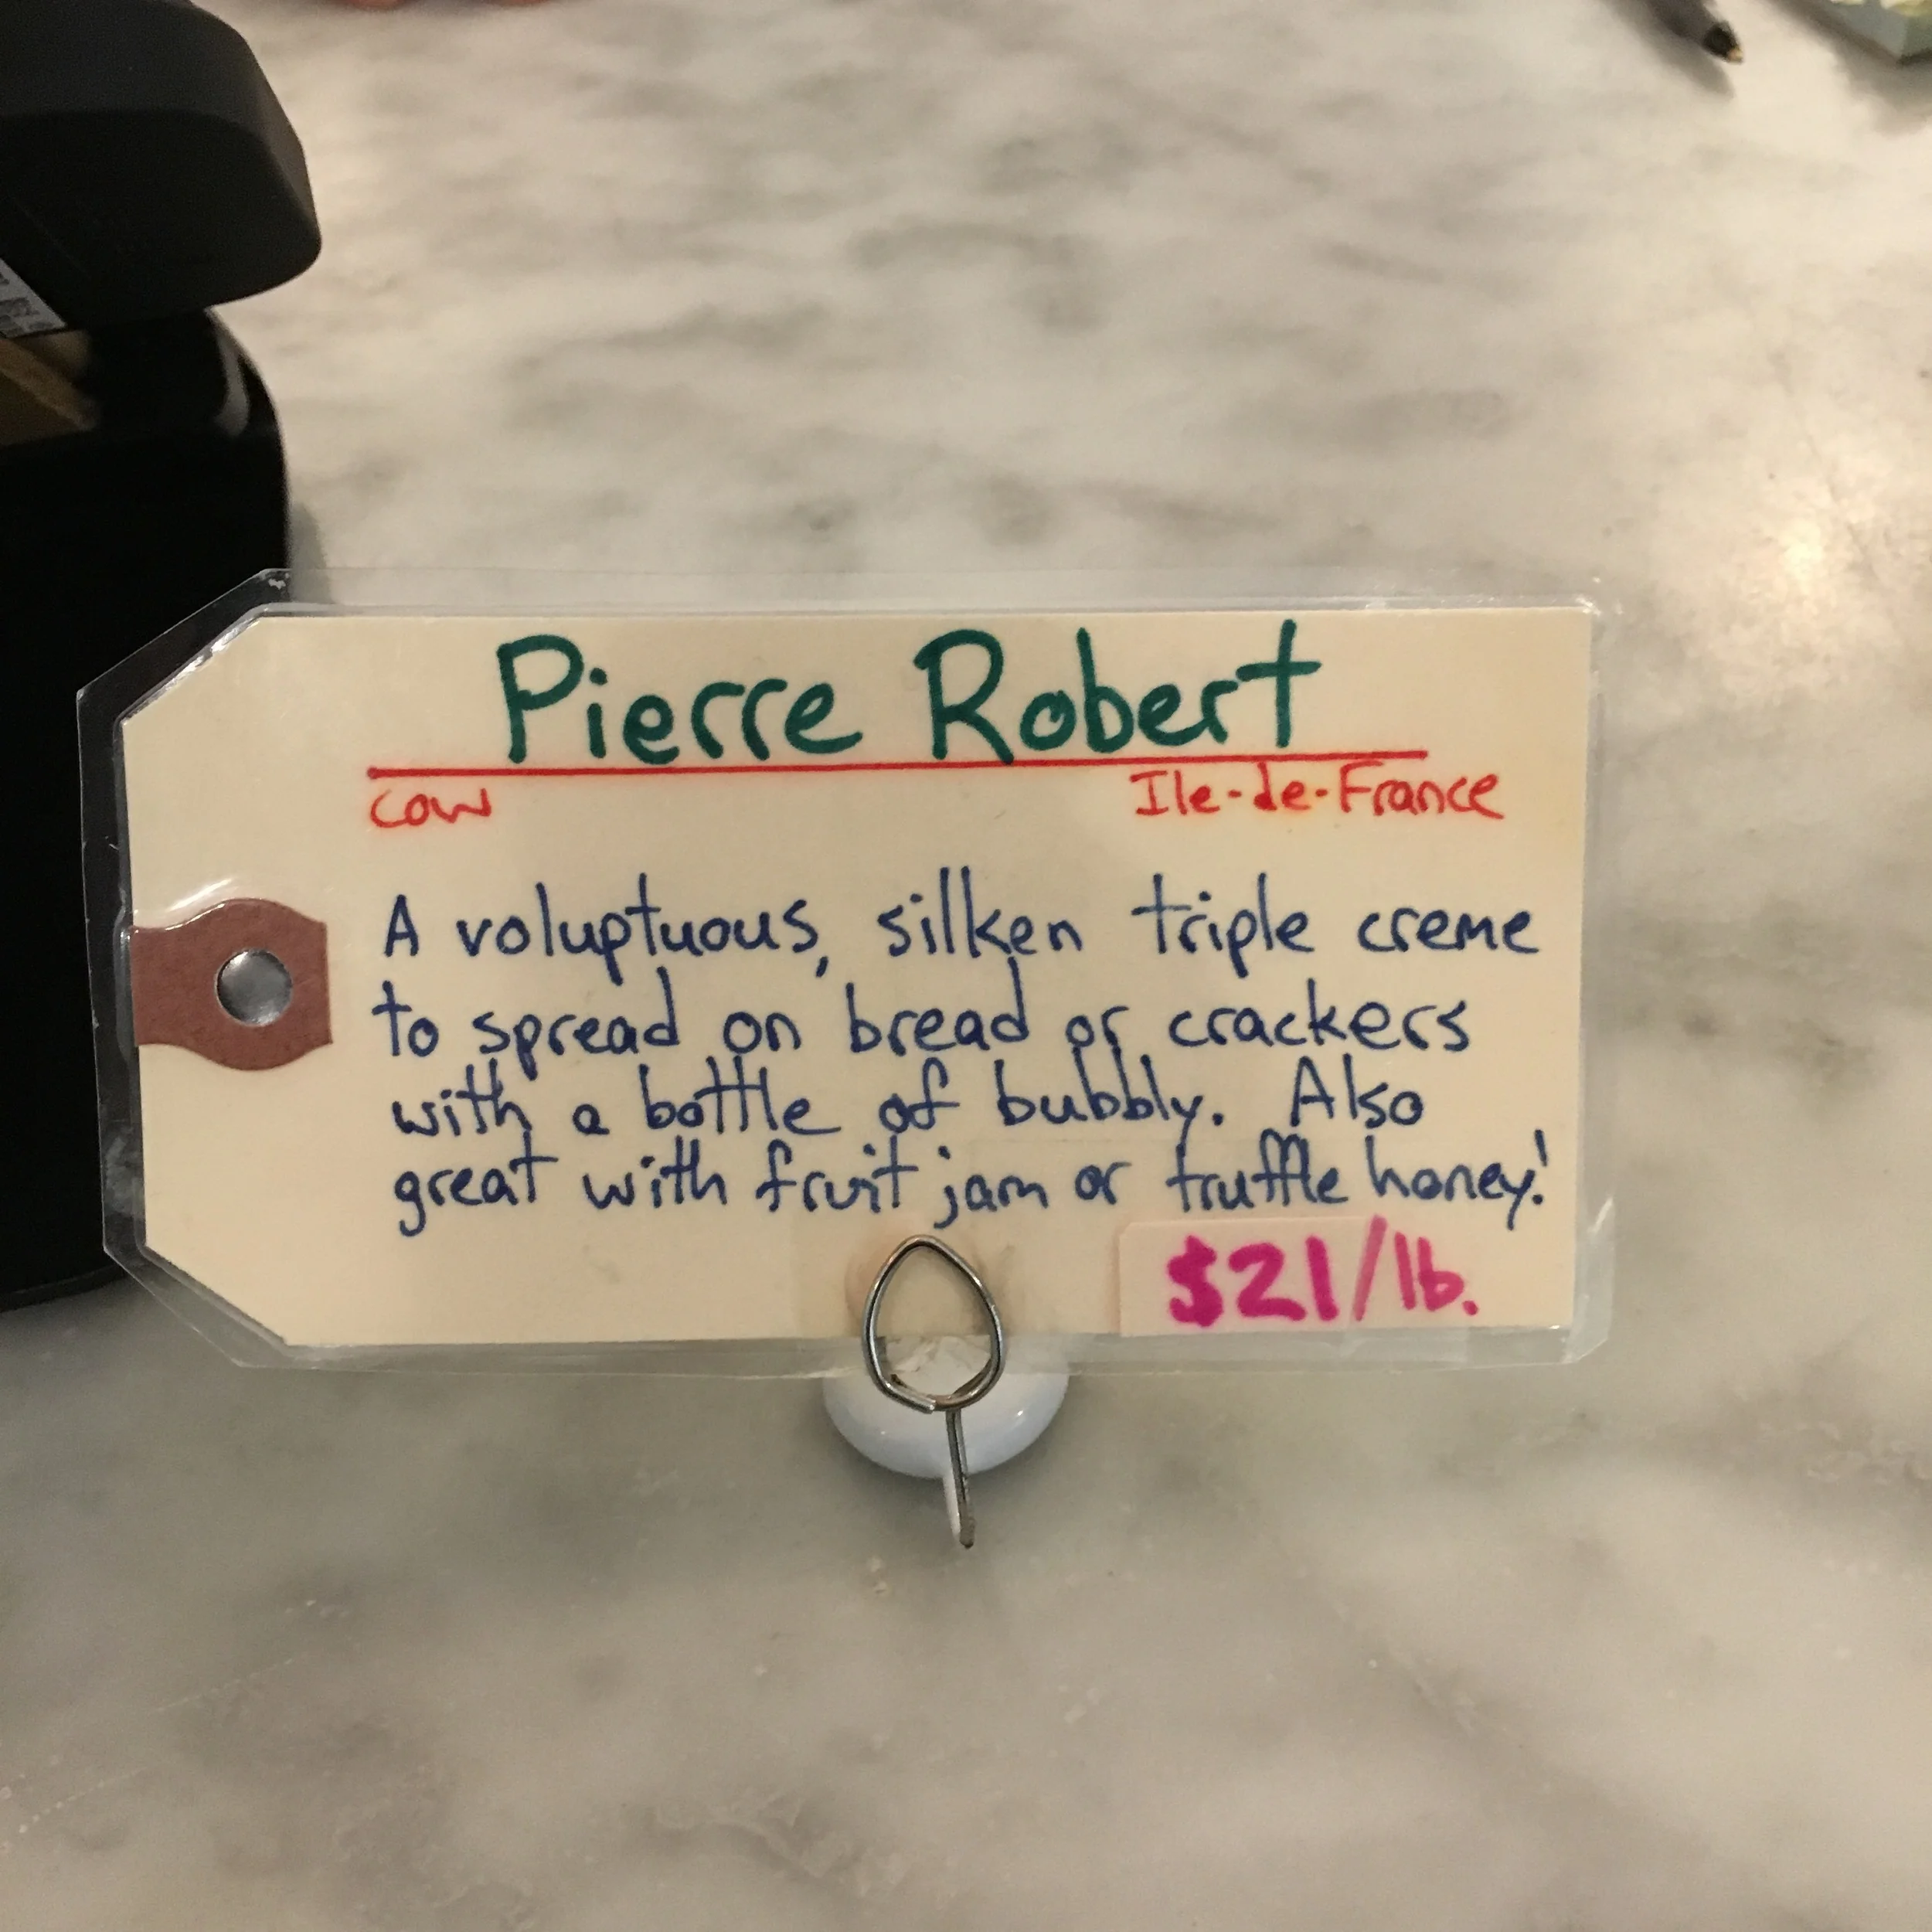 Pierre Robert
cow Ile-de-France
A voluptuous, silken triple creme
to spread on bread or crackers
with a bottle of bubbly. Also
great with fruit jam or truffle honey!
$21/lb.